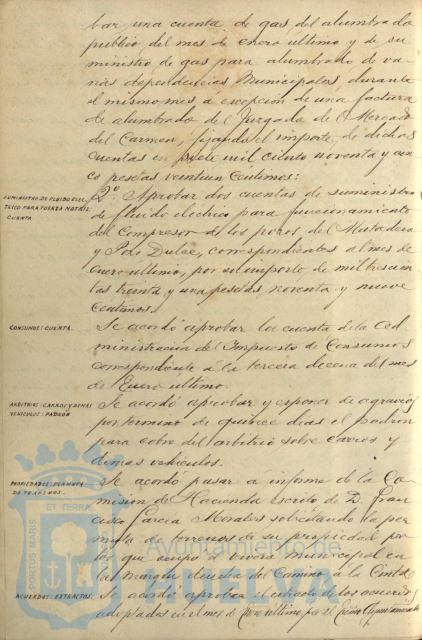 bar una cuenta de gas del alumbrado
público del mes de enero último y de su
ministro de gas para alumbrado de va
rias dependencias Municipales durante
el mismo mes, a excepción de una factura
de alumbrado del Juzgado de Mercado
del Carmen, fijando el importe de dichas
cuentas en siete mil ciento noventa y cin
co pesetas veintiun céntimos:
SUMINISTRO DE FLUIDO ELEC-
TRICO PARA FUERZA MOTRIZ
CUENTA
2º Aprobar dos cuentas de suministro
de fluido eléctrico para funcionamiento
del Compresor de los pozos del Matadero
y Pozo Dulce, correspondientes al mes de
enero último, por un importe de mil trescien
tas treinta y una pesetas noventa y nueve
céntimos.
CONSUMOS: CUENTA.
Se acordó aprobar la cuenta de la Ad
ministración del Impuesto de Consumos
correspondiente a la tercera decena del mes
de Enero último.
ARBITRIOS: CARROS Y DEMAS
VEHICULOS: PADRÓN
Se acordó aprobar y exponer de agravios
por término de quince días el padrón
para cobro del arbitrio sobre carros y
demas vehículos.
PROPIEDADES: PERMUTA
DE TERRENOS.
Se acordó pasar a informe de la Co
misión de Hacienda escrito de D. Fran
cisco García Morales solicitando la per
muta de terrenos de su propiedad por
los que ocupó el vivero municipal en
la margen derecha del Camino a la Cinta
ACUERDOS: EXTRACTOS:
Se acordó aprobar el extracto de los acuerdos
adoptados en el mes de último por el Excmo Ayuntamiento
PORTUS MARIS
ET TERRAE
Ayuntamiento de
HUELVA